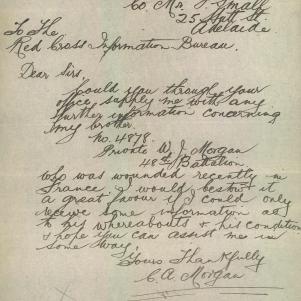 Co. Mr. T. Small
25 Hutt St.
Adelaide.
To The
Red Cross Information Bureau.
Dear Sirs,
Could you through your
office supply me with any
further information concerning
my brother.
No. 4878.
Private W. J. Morgan
48th Battalion.
who was wounded recently in
France. I would it
a great favour if I could only
receive some information as
to his whereabouts & his condition
& hope you can assist me in
some way,
Yours Thankfully
C. A. Morgan